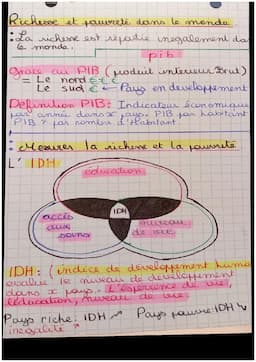 Richesse et pauvreté dans le monde
: La richesse est répartie inégalement da
le monde.
pib
Grace au PIB (produit interieur Brut)
= Le nord €€€
Le sud € ← Pays en développement
Définition PIB: Indicateur économique
par année dans x pays. PIB par habitant
PIB ? par nombre d'habitant.
: Mesurer la richesse et la pauvreté
L'IDH
éducation
accès
aux
soins
IDH
niveau
de vie
IDH: (indice de développement huma
évalue le niveau de développement
dans x pays. L'espérance de vie,
l'éducation, niveau de vie.
Pays riche: IDH ↗ Pays pauvre: IDH ↘
inégalité ↗